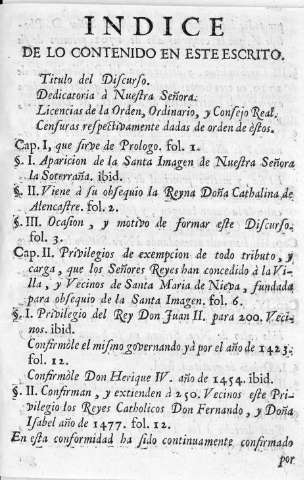 INDICE
DE LO CONTENIDO EN ESTE ESCRITO.
Titulo del Discurso.
Dedicatoria à Nuestra Señora.
Licencias de la Orden, Ordinario, y Consejo Real.
Censuras respectivamente dadas de orden de èstos.
Cap. I, que sirve de Prologo. fol. 1.
§. I. Aparicion de la Santa Imagen de Nuestra Señora
la Soterraña. ibid.
§. II. Viene à su obsequio la Reyna Doña Cathalina de
Alencastre. fol. 2.
§. III. Ocasion, y motivo de formar este Discurso.
fol. 3.
Cap. II. Privilegios de exempcion de todo tributo, y
carga, que los Señores Reyes han concedido à la Vi-
lla, y Vecinos de Santa Maria de Nieva, fundada
para obsequio de la Santa Imagen. fol. 6.
§. I. Privilegio del Rey Don Juan II. para 200. Veci-
nos. ibid.
Confirmòle el mismo governando yà por el año de 1423.
fol. 12.
Confirmòle Don Herique IV. año de 1454. ibid.
§. II. Confirman, y extienden à 250. Vecinos este Pri-
vilegio los Reyes Catholicos Don Fernando, y Doña
Isabel año de 1477. fol. 12.
En esta conformidad ha sido continuamente confirmado
por